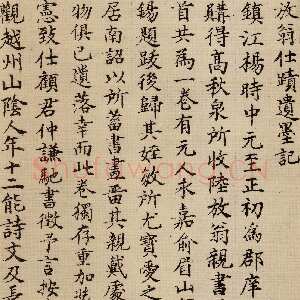 放翁仕蹟遺墨記
鎮江楊時中元至正初為郡庠
購得高秋泉所收陸放翁親書
首共為一卷有元永嘉俞眉山
錫題跋後歸其姪敬所尤寶愛之
居南詔以所蓄書畫畱其親戴處
物俱已遺落幸而此卷獨存重加
憲致仕顧君仲謙馳書徵予言按
觀越州山陰人年十二能詩文及